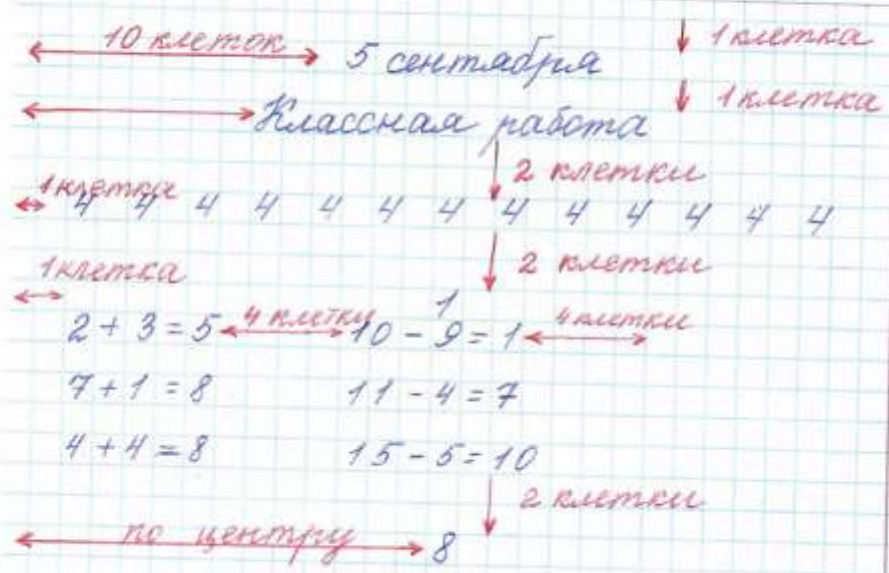 10 клеток 5 сентября 1 клетка
Классная работа 1 клетка
2 клетки
1 клетка
4 4 4 4 4 4 4 4 4 4 4 4 4
1 клетка 2 клетки
1
2 + 3 = 5 4 клетки 10 - 9 = 1 4 клетки
7 + 1 = 8 11 - 4 = 7
4 + 4 = 8 15 - 5 = 10
2 клетки
по центру 8